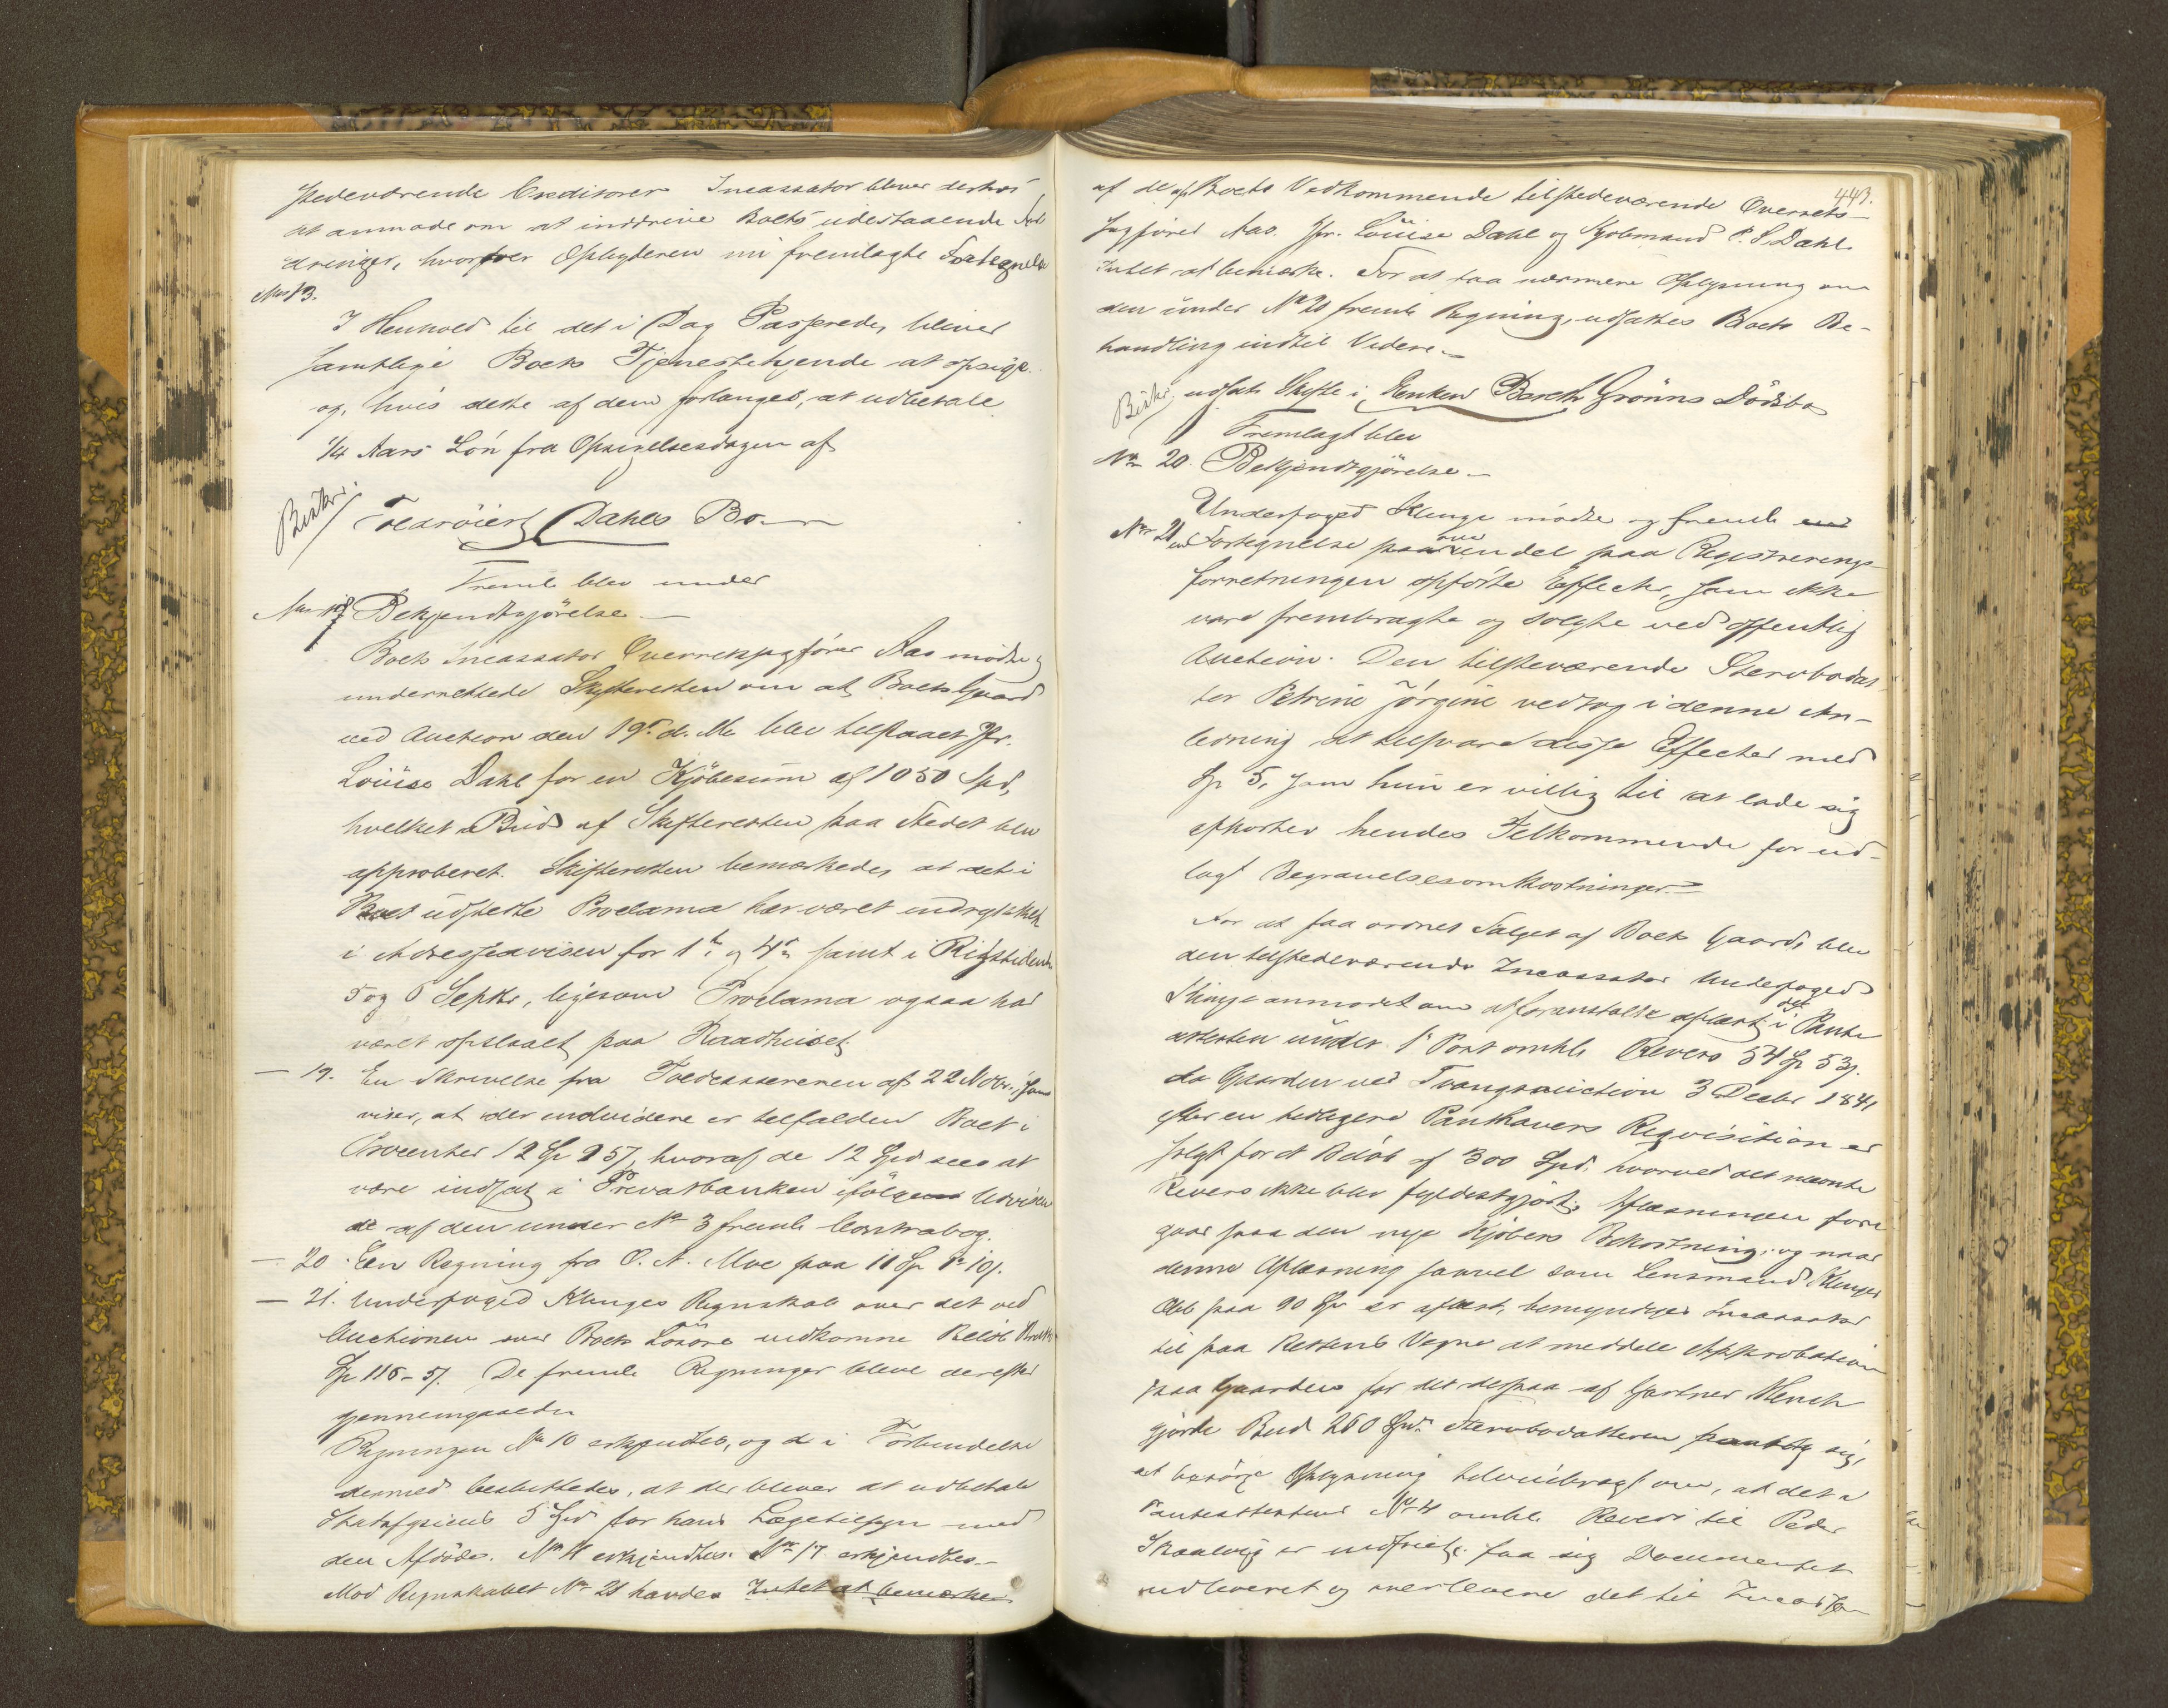 stedeværende Creditorer Incassator bliver derhos
at anmode om at inddrive Boets udestaaende For
dringer, hvorfor Opbyderen nu fremlagte Fortegnelse
No 13.
I Henhold til det i Dag Passerede, bliver
samtlige Boets Tjenestetyende at opsige
og, hvis dette af dem forlanges, at udbetale
1/4 Aars Løn fra Opsigelsesdagen af
Toldrøiert Dahls Bo
Freml. blev under
No 18 Bekjendtgjørelse
Boets Incassator Overretssagfører Aas mødte og
underrettede Skifteretten om at Boets Gaard
ved Auction den 19de d. M. blev tilslaaet Jfr.
Louise Dahl for en Kjøbesum af 1050 Spd,
hvilket Bud af Skifteretten paa Stedet blev
approberet. Skifteretten bemærkede, at det i
Boet udstedte Proclama har været indrykket
i Adresseavisen for 1ste og 4de samt i Rigstidende
5 og 6 Septbr, ligesom Proclama ogsaa har
været opslaaet paa Raadhuset.
– 19. En Skrivelse fra Toldcassereren af 22 Novbr., som
viser, at der endvidere er tilfalden Boet i
Procenter 12 Sp 2 57, hvoraf de 12 Spd sees at
være indsat i Privatbanken ifølge Udvisen
de af den under No 3 freml. Contrabog.
– 20. En Regning fra O. N. Moe paa 11 Sp 1 10/.
– 21. Underfoged Klinges Regnskab over det ved
Auctionen over Boets Løsøre indkomne Beløb Brutto
Sp 116 - 5/. De freml. Regninger bleve derefter
gjennemgaaede
Regningen No 10 erkjendtes, og i Forbindelse
dermed besluttedes, at der bliver at udbetale
Stadsfysicus 5 Spd for hans Lægetilsyn med
den Afdøde. No 11 erkjendtes. No 17 erkjendtes.
Mod Regnskabet No 21 havdes Intet at bemærke
443.
af de af Boets Vedkommende tilstedeværende Overrets-
sagfører Aas. Jfr. Louise Dahl og Kjøbmand P. S. Dahl
Intet at bemærke. For at faa nærmere Oplysning om
den under No 20 freml. Regning, udsættes Boets Be-
handling indtil Videre.
udsat Skifte i Enken Bareth Grønns Dødsbo
Fremlagt blev
No 20. Bekjendtgjørelse
Underfoged Klinge mødte og freml.
No 21 en Fortegnelse over en del paa Registrerings-
forretningen opførte Effecter, som ikke
vare frembragte og solgte ved offentlig
Auction. Den tilstedeværende Stervbodat
ter Petrine Jørgine vedtog i denne An-
ledning at tilsvare disse Effecter med
Sp 5, som hun er villig til at lade sig
afkorte hendes Tilkommende for ud-
lagt Begravelsesomkostninger.
For at faa ordnet Salget af Boets Gaard, blev
den tilstedeværende Incassator Underfoged
Klinge anmodet om at foranstalte aflæst det i Pante
attesten under 1 Post omhl. Revers 54 Sp 53/.
da Gaarden ved Tvangsauction 3 Decbr 1841
efter en tidligere Panthavers Reqvisition er
solgt for et Beløb af 300 Spd. hvorved det nævnte
Revers ikke blev fyldestgjort. Aflæsningen fore
gaar paa den nye Kjøbers Bekostning, og naar
denne Aflæsning saavel som Lensmand Klinges
Obl. paa 90 Spd er aflæst, bemyndiges Incassator
til paa Rettens Vegne at meddele Approbation
paa Gaarden for det derpaa af Gartner Wench
gjorte Bud 260 Spd. Stervbodatteren paatog sig,
at besørge Oplysning tilveiebragt om, at det i
Panteattestens No 4 omhl. Revers til Peder
Skaalvig er indfriet, faa sig Documentet
udleveret og overlevere det til Incassa